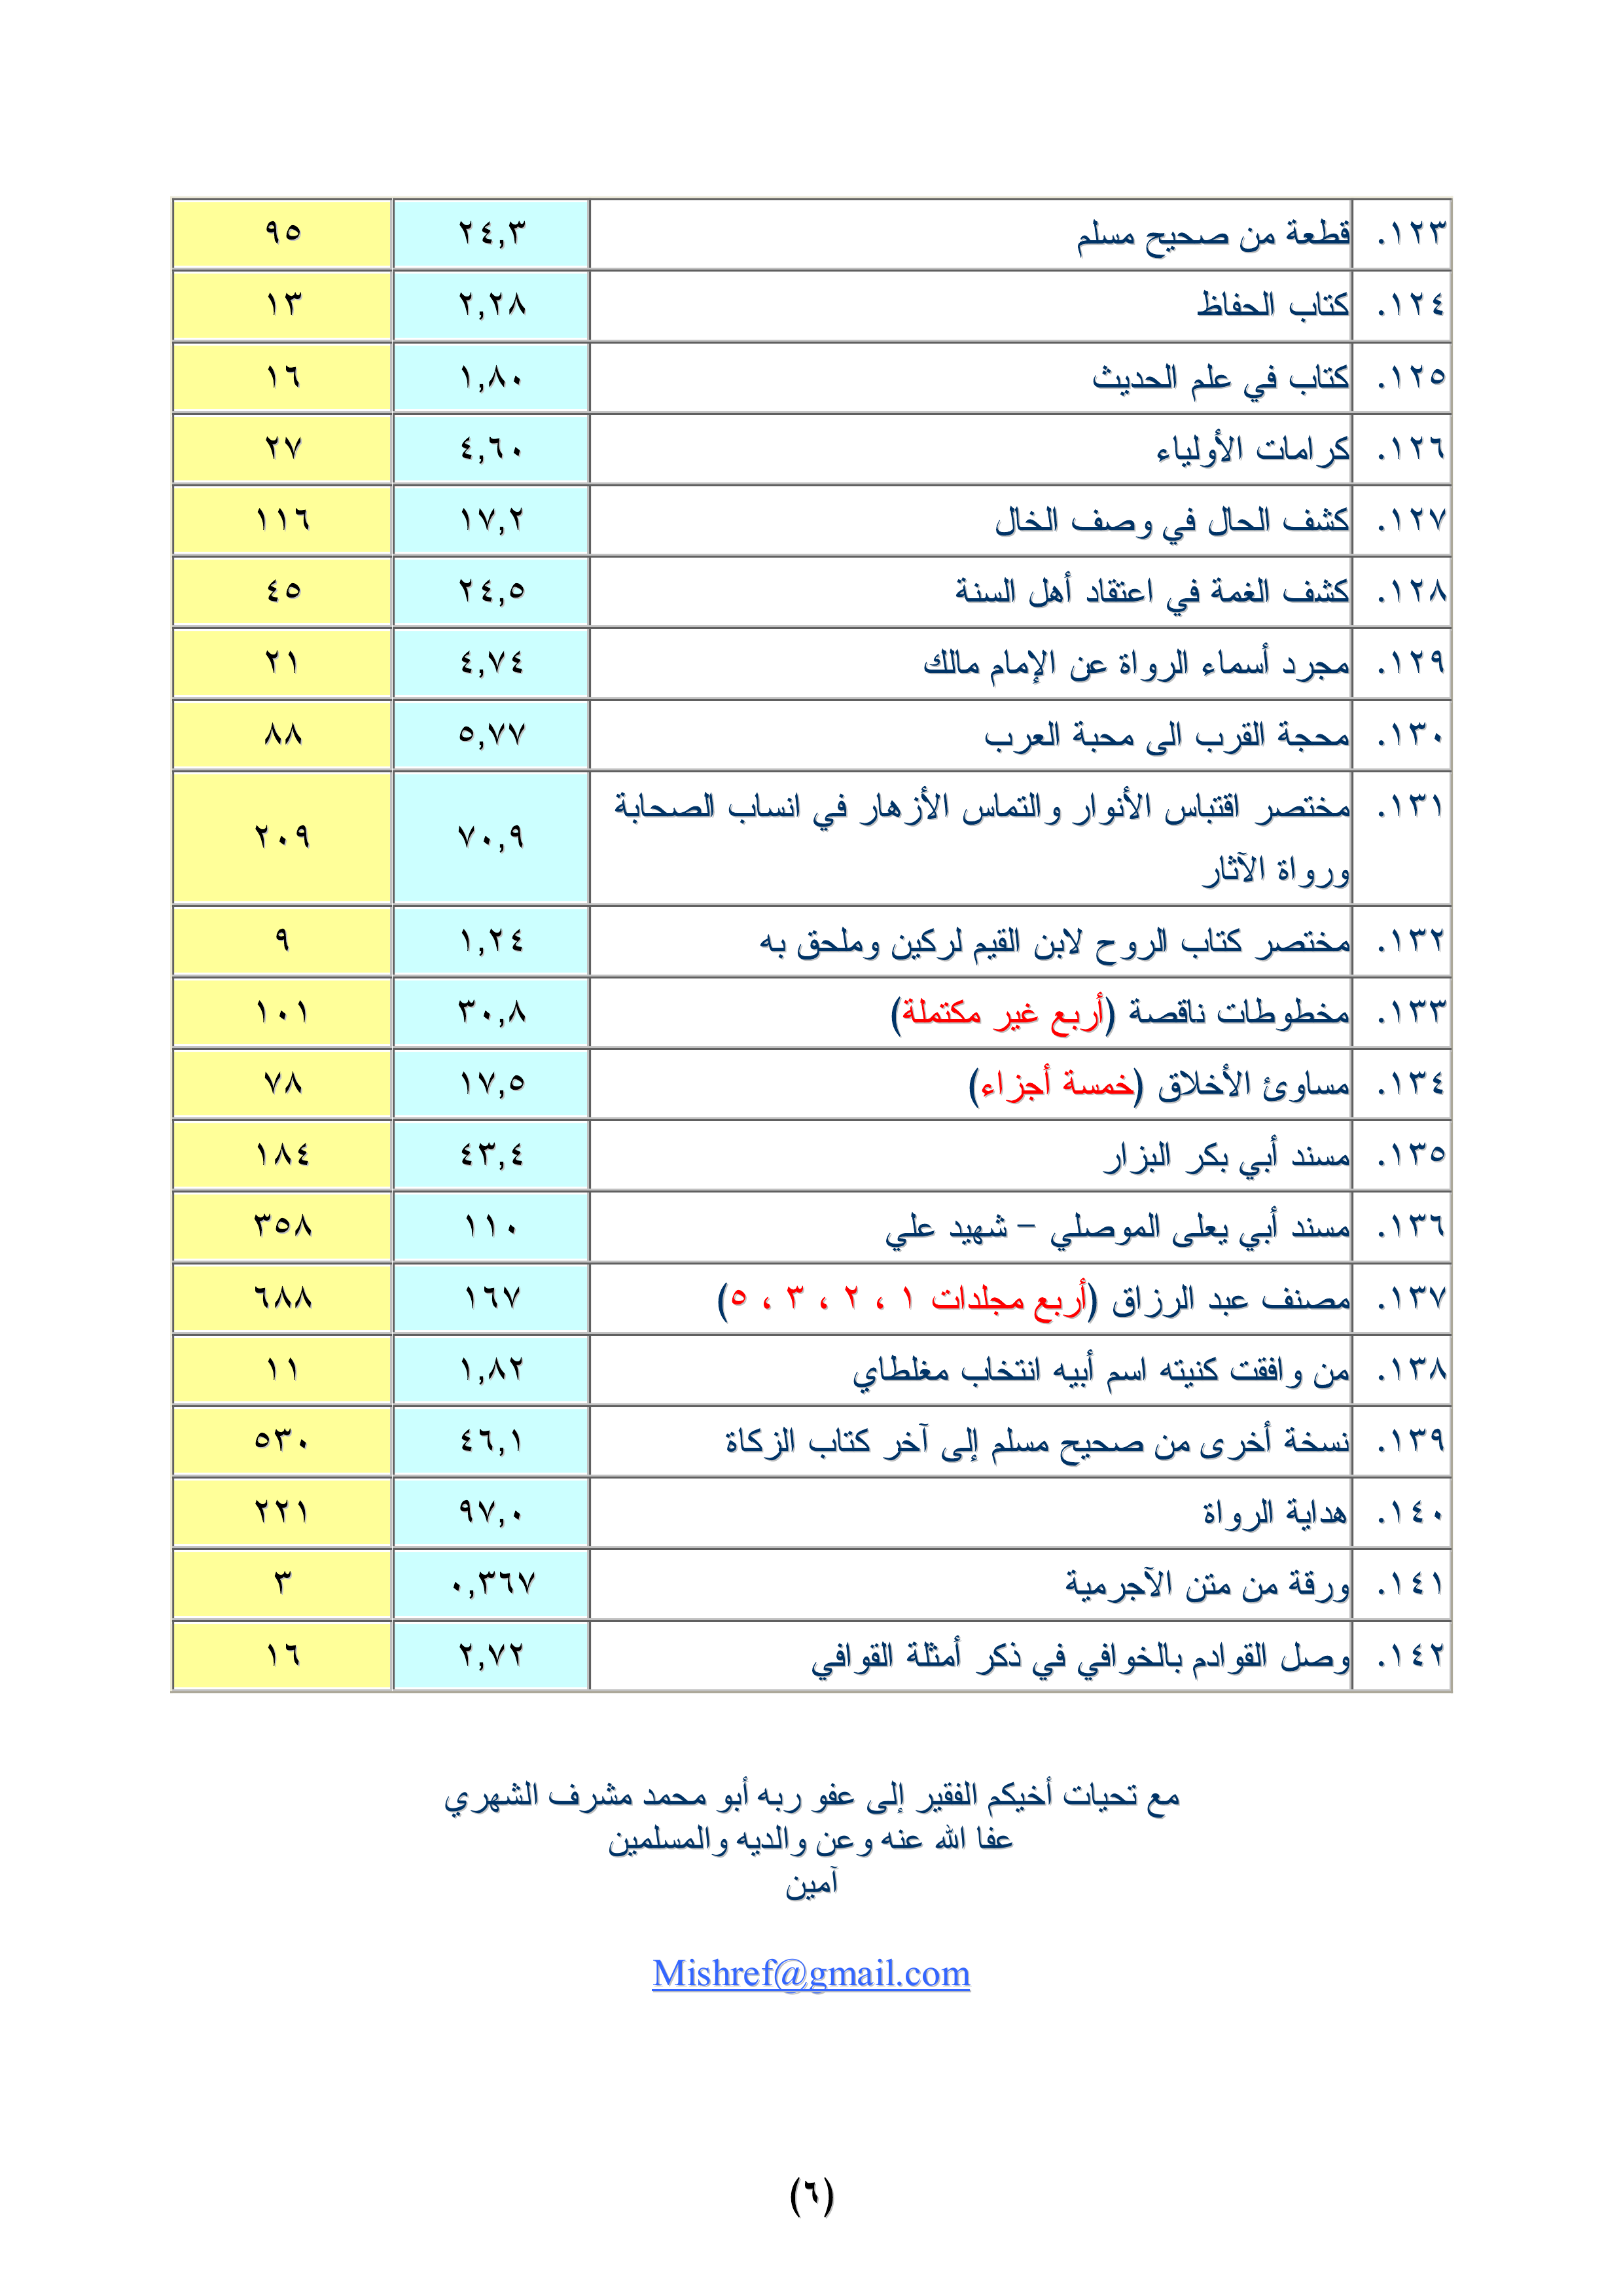 ١٢٣. قطعة من صحيح مسلم ٢٤,٣ ٩٥
١٢٤. كتاب الحفاظ ٢,٢٨ ١٣
١٢٥. كتاب في علم الحديث ١,٨٠ ١٦
١٢٦. كرامات الأولياء ٤,٦٠ ٢٧
١٢٧. كشف الحال في وصف الخال ١٧,٢ ١١٦
١٢٨. كشف الغمة في اعتقاد أهل السنة ٢٤,٥ ٤٥
١٢٩. مجرد أسماء الرواة عن الإمام مالك ٤,٧٤ ٢١
١٣٠. محجة القرب الى محبة العرب ٥,٧٧ ٨٨
١٣١. مختصر اقتباس الأنوار والتماس الأزهار في انساب الصحابة
ورواة الآثار ٧٠,٩ ٢٠٩
١٣٢. مختصر كتاب الروح لابن القيم لركين وملحق به ١,٢٤ ٩
١٣٣. مخطوطات ناقصة (أربع غير مكتملة) ٣٠,٨ ١٠١
١٣٤. مساوئ الأخلاق (خمسة أجزاء) ١٧,٥ ٧٨
١٣٥. مسند أبي بكر البزار ٤٣,٤ ١٨٤
١٣٦. مسند أبي يعلى الموصلي – شهيد علي ١١٠ ٣٥٨
١٣٧. مصنف عبد الرزاق (أربع مجلدات ١ ، ٢ ، ٣ ، ٥) ١٦٧ ٦٨٨
١٣٨. من وافقت كنيته اسم أبيه انتخاب مغلطاي ١,٨٢ ١١
١٣٩. نسخة أخرى من صحيح مسلم إلى آخر كتاب الزكاة ٤٦,١ ٥٣٠
١٤٠. هداية الرواة ٩٧,٠ ٢٢١
١٤١. ورقة من متن الآجرمية ٠,٣٦٧ ٣
١٤٢. وصل القوادم بالخوافي في ذكر أمثلة القوافي ٢,٧٢ ١٦
مع تحيات أخيكم الفقير إلى عفو ربه أبو محمد مشرف الشهري
عفا الله عنه وعن والديه والمسلمين
آمين
Mishref@gmail.com
(٦)